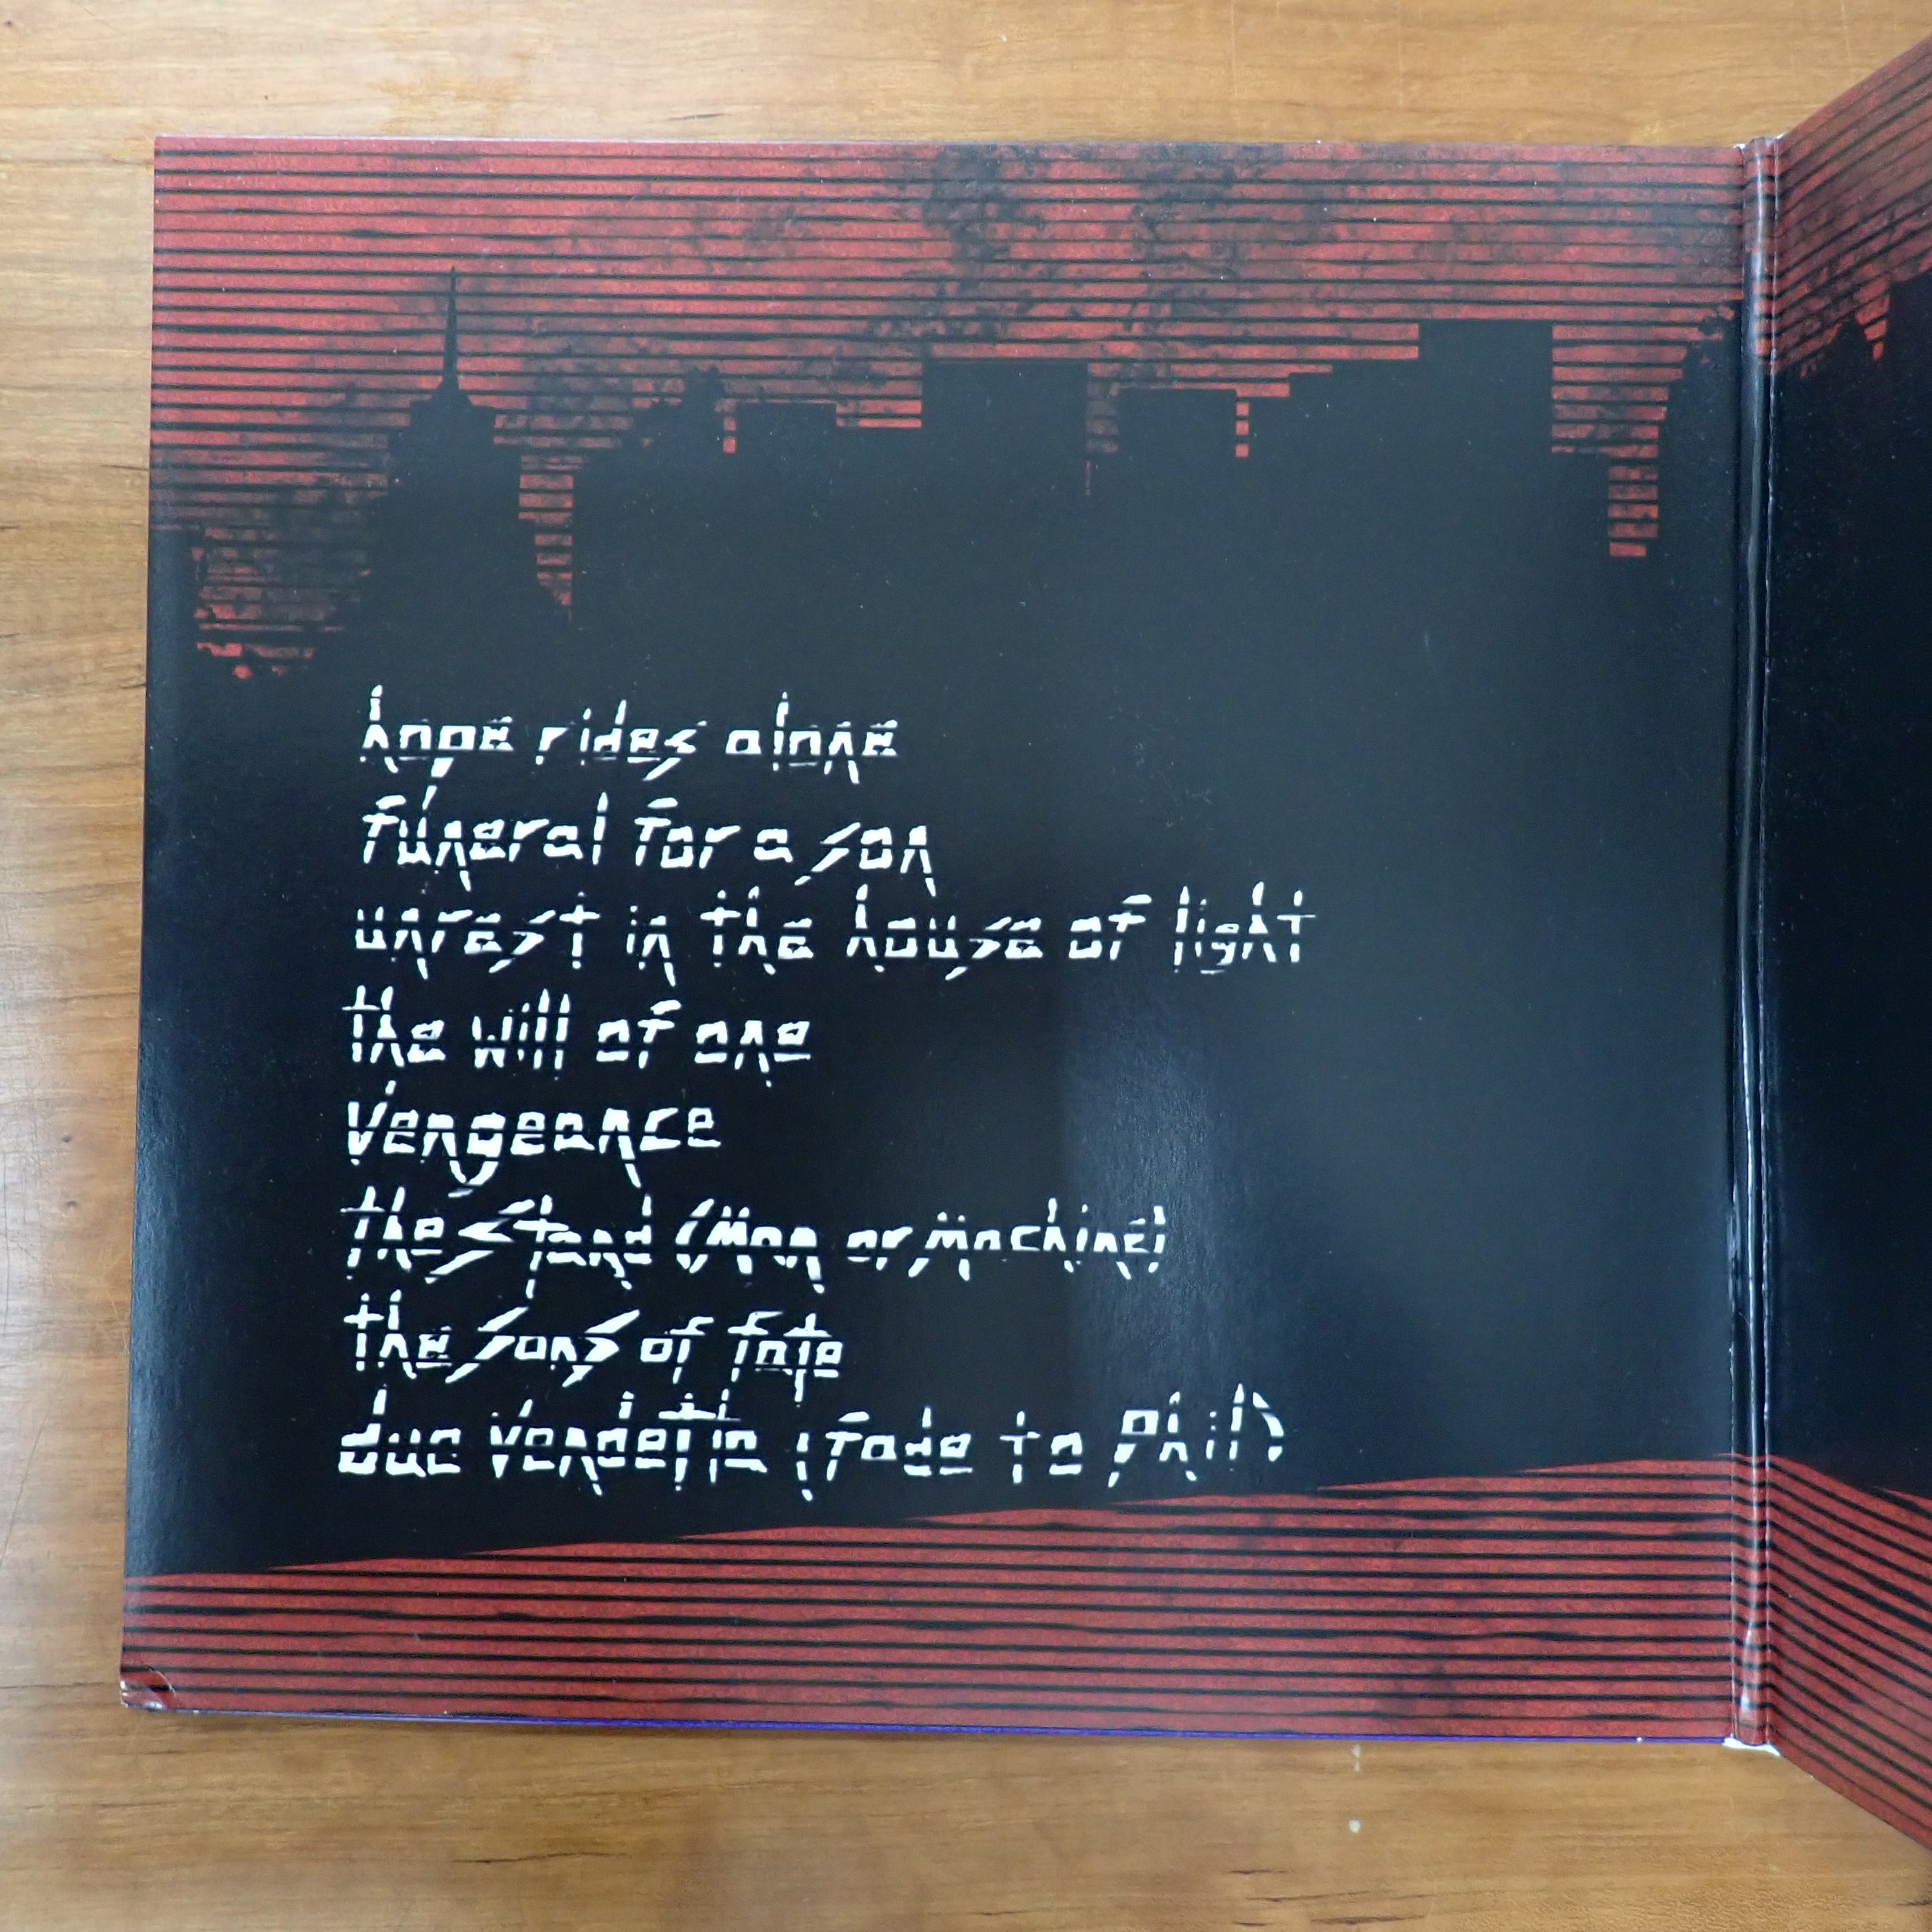 hope rides alone
funeral for a son
unrest in the house of light
the will of one
Vengeance
the stand (Man or Machine)
the sons of fate
due Vendetta (fade to Phil)